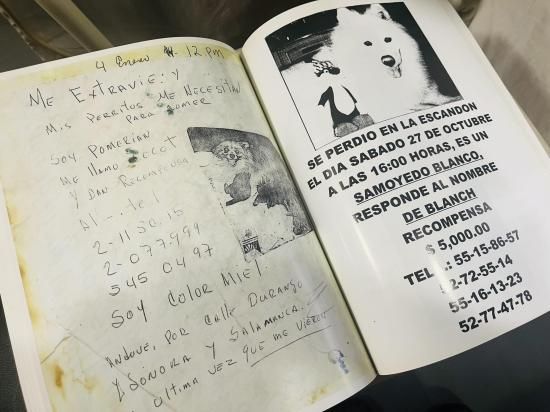 4 Enero 12 PM
ME EXTRAVIE: Y
MIS PERRITOS ME NECESITAN
PARA COMER
SOY POMERIAN
ME LLAMO
Y DAN RECOMPENSA
2-11 50.15
2-077-999
545 04 97
SOY COLOR MIEL.
ANDUVE, POR CALLE DURANGO
Y SONORA Y SALAMANCA.
ULTIMA VEZ QUE ME VIERON
SE PERDIO EN LA ESCANDON
EL DIA SABADO 27 DE OCTUBRE
A LAS 16:00 HORAS, ES UN
SAMOYEDO BLANCO,
RESPONDE AL NOMBRE
DE BLANCH
RECOMPENSA
$ 5,000.00
55-15-86-57
52-72-55-14
55-16-13-23
52-77-47-78